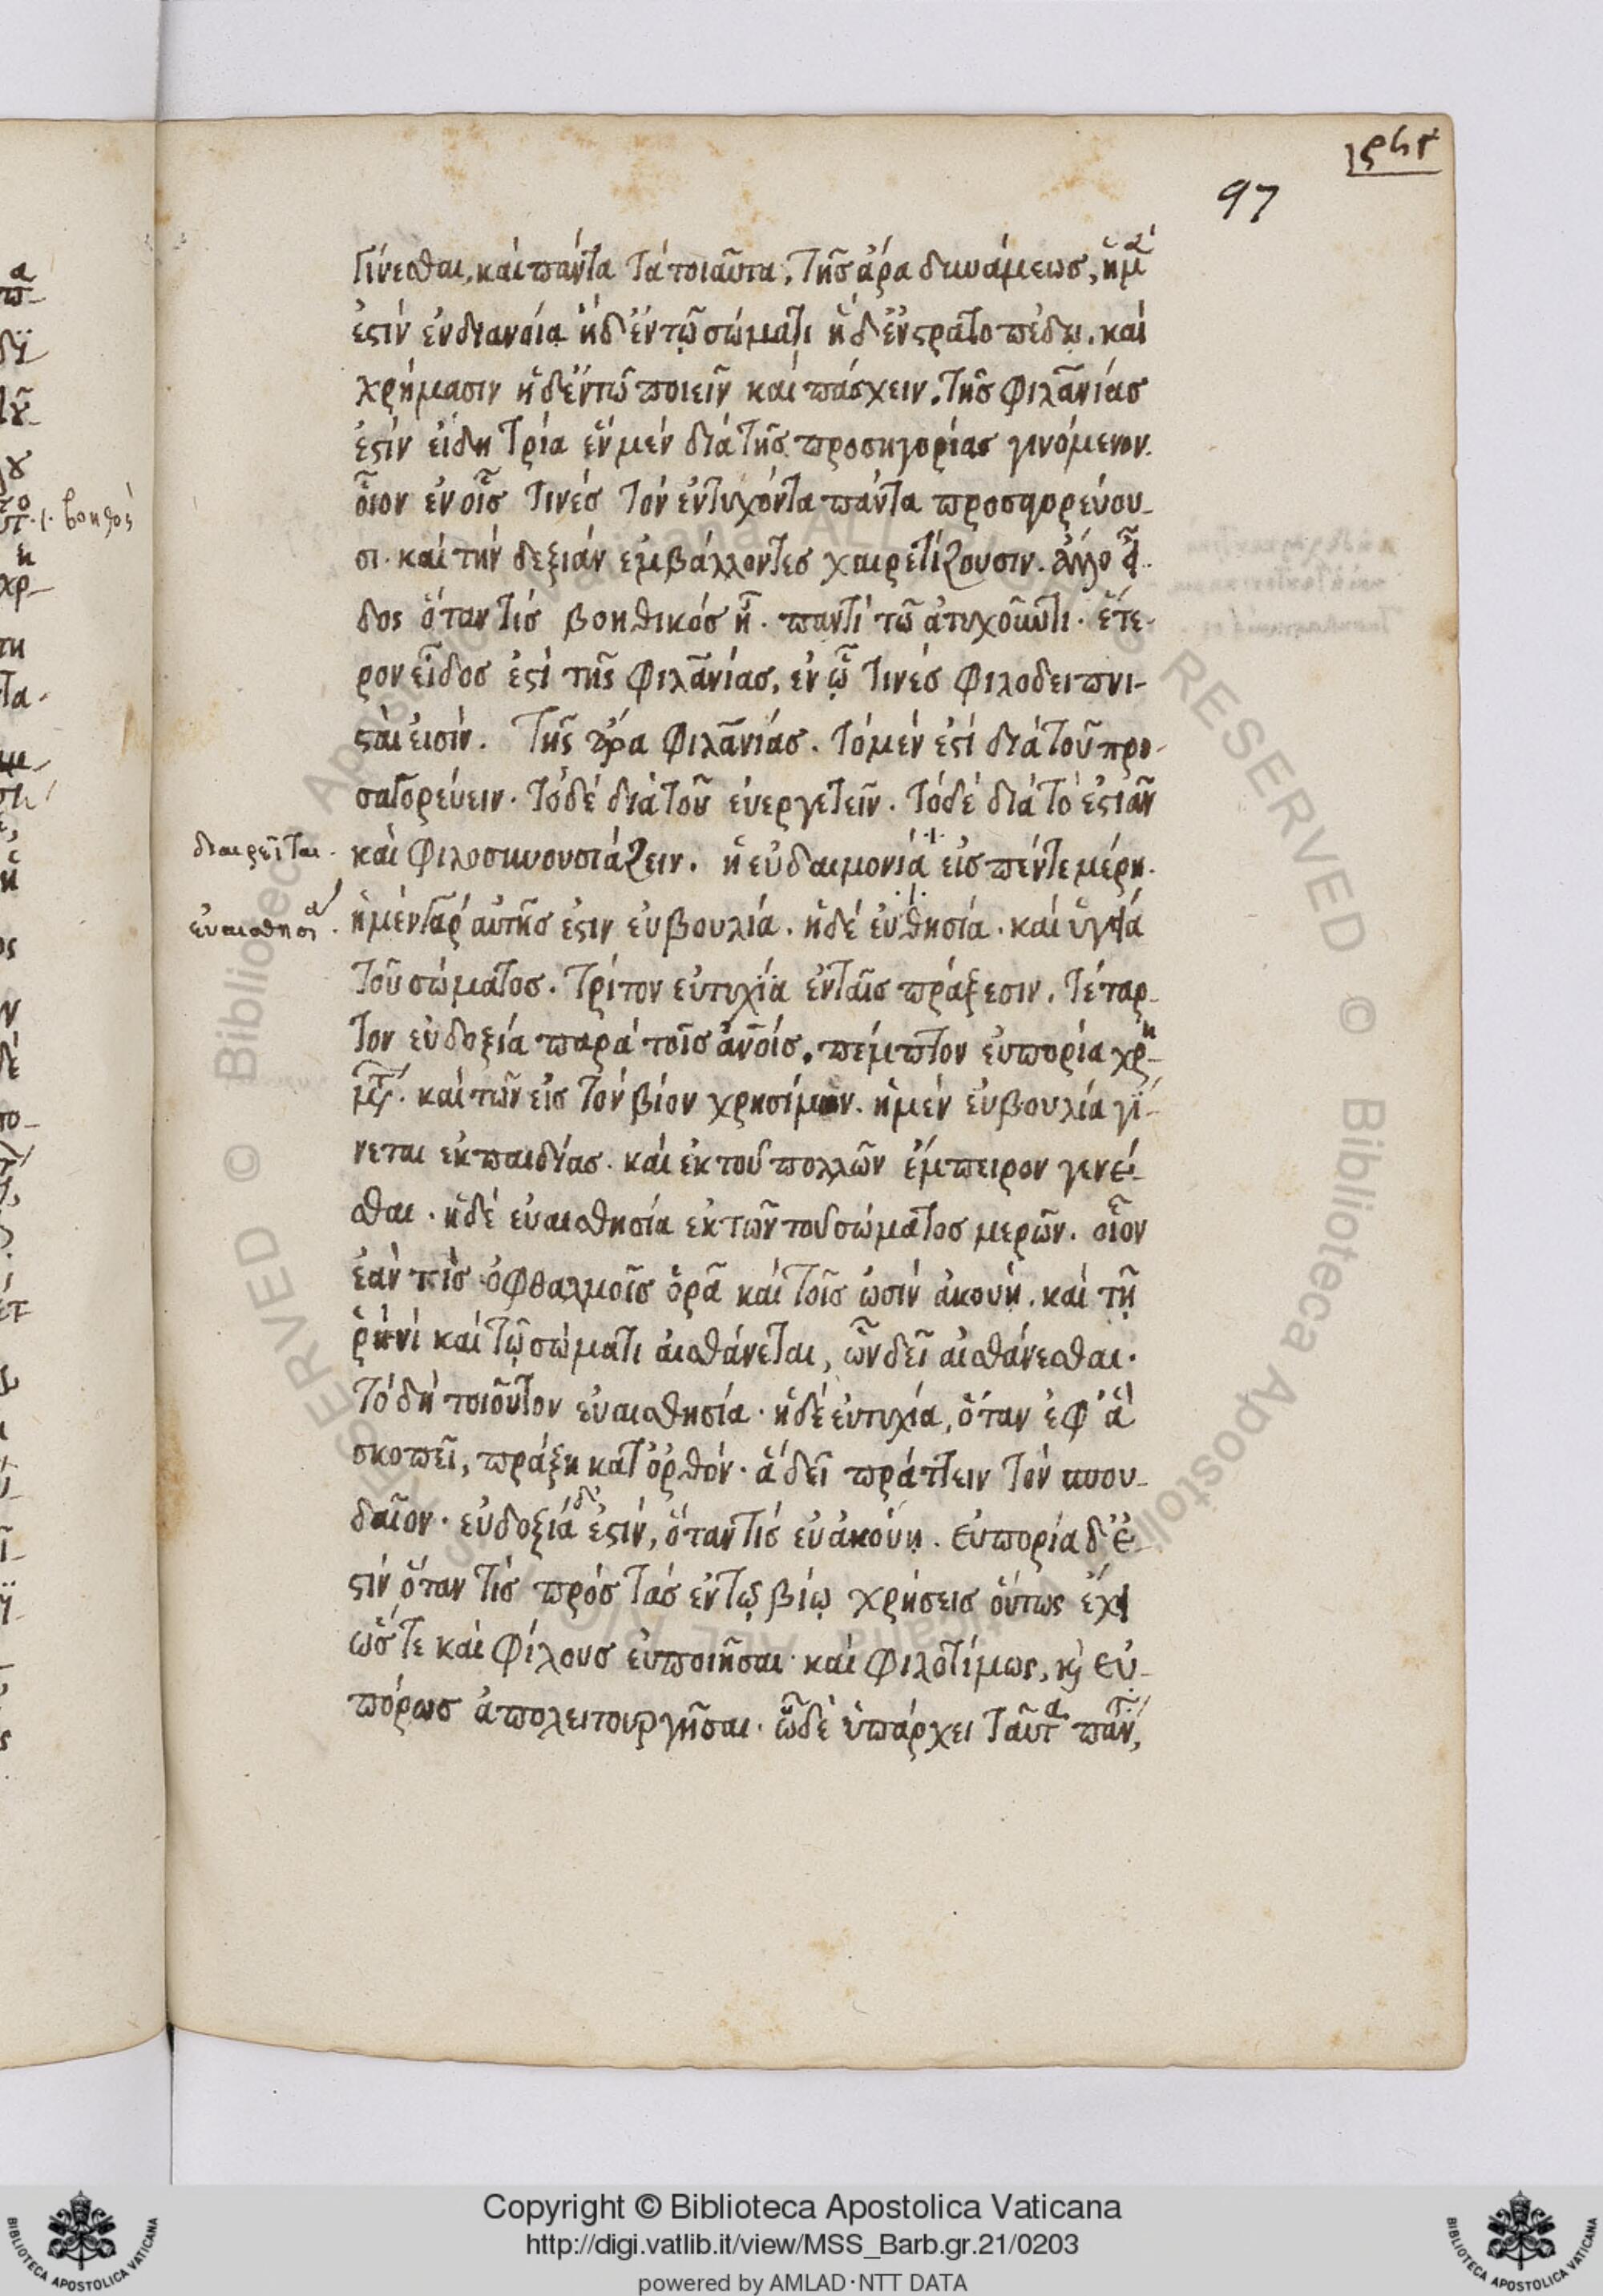 97
γίνεσθαι, καὶ πάντα τὰ τοιαῦτα. τῆς ἄρα δυνάμεως, ἡ μ̅
ἐστὶν ἐν διανοία ἡ δ' ἐν τῷ σώματι ἡ δ' ἐν στρατοπέδῳ. καὶ
χρήμασιν ἡ δ' ἐν τῶ ποιεῖν καὶ πάσχειν. τῆς φιλα̅νίας
ἐστὶν εἴδη τρία ἓν μὲν διὰ τῆς προσηγορίας γινόμενον.
οἷον ἐν οἷς τινὲς τὸν ἐντυχόντα πάντα προσαγορεύου-
σι. καὶ τὴν δεξιὰν ἐμβάλλοντες χαιρετίζουσιν. ἄλλο εἶ-
δος ὅταν τὶς βοηθικὸς ἦ. παντὶ τῶ ἀτυχοῦντι. ἕτε-
ρον εἶδος ἐστὶ τῆς φιλα̅νίας, ἐν ᾧ τινὲς φιλοδειπνι-
σταὶ εἰσίν. τῆς ἄρα φιλα̅νίας. τὸ μὲν ἐστὶ διὰ τοῦ προ-
σαγορεύειν. τὸ δὲ διὰ τοῦ εὐεργετεῖν. τὸ δὲ διὰ τὸ ἑστιᾶν
διαιρεῖται. καὶ φιλοσυνουσιάζειν. ἡ εὐδαιμονία εἰς πέντε μέρη.
εὐαισθησία. ἡ μὲν γὰρ αὐτῆς ἐστιν εὐβουλία. ἡ δὲ εὐθησία. καὶ ὑγεία
τοῦ σώματος. τρίτον εὐτυχία ἐν ταῖς πράξεσιν. τέταρ-
τον εὐδοξία παρὰ τοῖς α̅νοις. πέμπτον εὐπορία χρη-
μ̅τ. καὶ τῶν εἰς τὸν βίον χρησίμων. ἡ μὲν εὐβουλία γί-
νεται ἐκ παιδείας. καὶ ἐκ τοῦ πολλῶν ἔμπειρον γενέ-
σθαι. ἡ δὲ εὐαισθησία ἐκ τῶν τοῦ σώματος μερῶν. οἷον
ἐάν τις ὀφθαλμοῖς ὁρᾶ καὶ τοῖς ὠσὶν ἀκούῃ. καὶ τῇ
ῥινὶ καὶ τῷ σώματι αἰσθάνεται, ὧν δεῖ αἰσθάνεσθαι.
τὸ δὴ τοιοῦτον εὐαισθησία. ἡ δὲ εὐτυχία, ὅταν ἐφ' ἃ
σκοπεῖ, πράξη κατ' ὀρθόν. ἃ δεῖ πράττειν τὸν σπου-
δαῖον. εὐδοξία δ' ἐστίν, ὅταν τὶς εὖ ἀκούῃ. εὐπορία δ' ἐ-
στὶν ὅταν τὶς πρὸς τὰς ἐν τῷ βίῳ χρήσεις οὕτως ἔχει
ὥστε καὶ φίλους εὐποιῆσαι. καὶ φιλοτίμως, κ̀ εὐ-
πόρως ἀπολειτουργῆσαι. ᾧ δὲ ὑπάρχει ταῦτα παν,
Copyright © Biblioteca Apostolica Vaticana
http://digi.vatlib.it/view/MSS_Barb.gr.21/0203
powered by AMLAD·NTT DATA